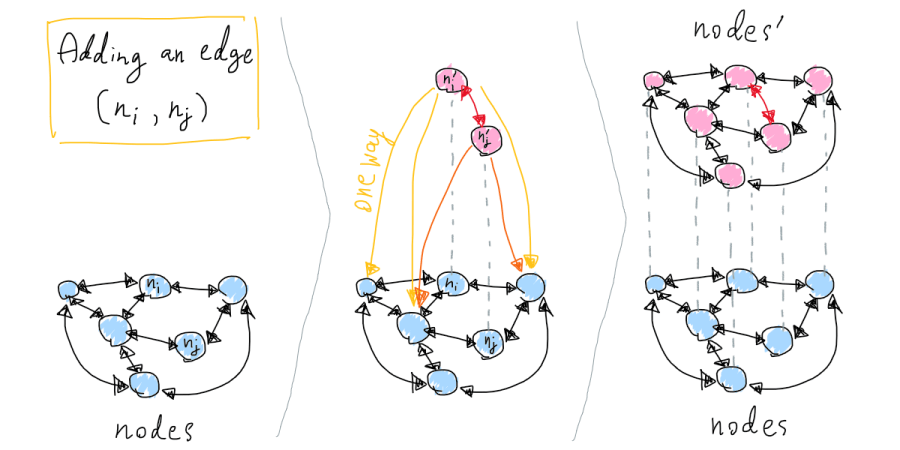 Adding an edge
(ni, nj)
nodes'
ni'
nj'
one way
ni
nj
nodes
ni
nj
nodes